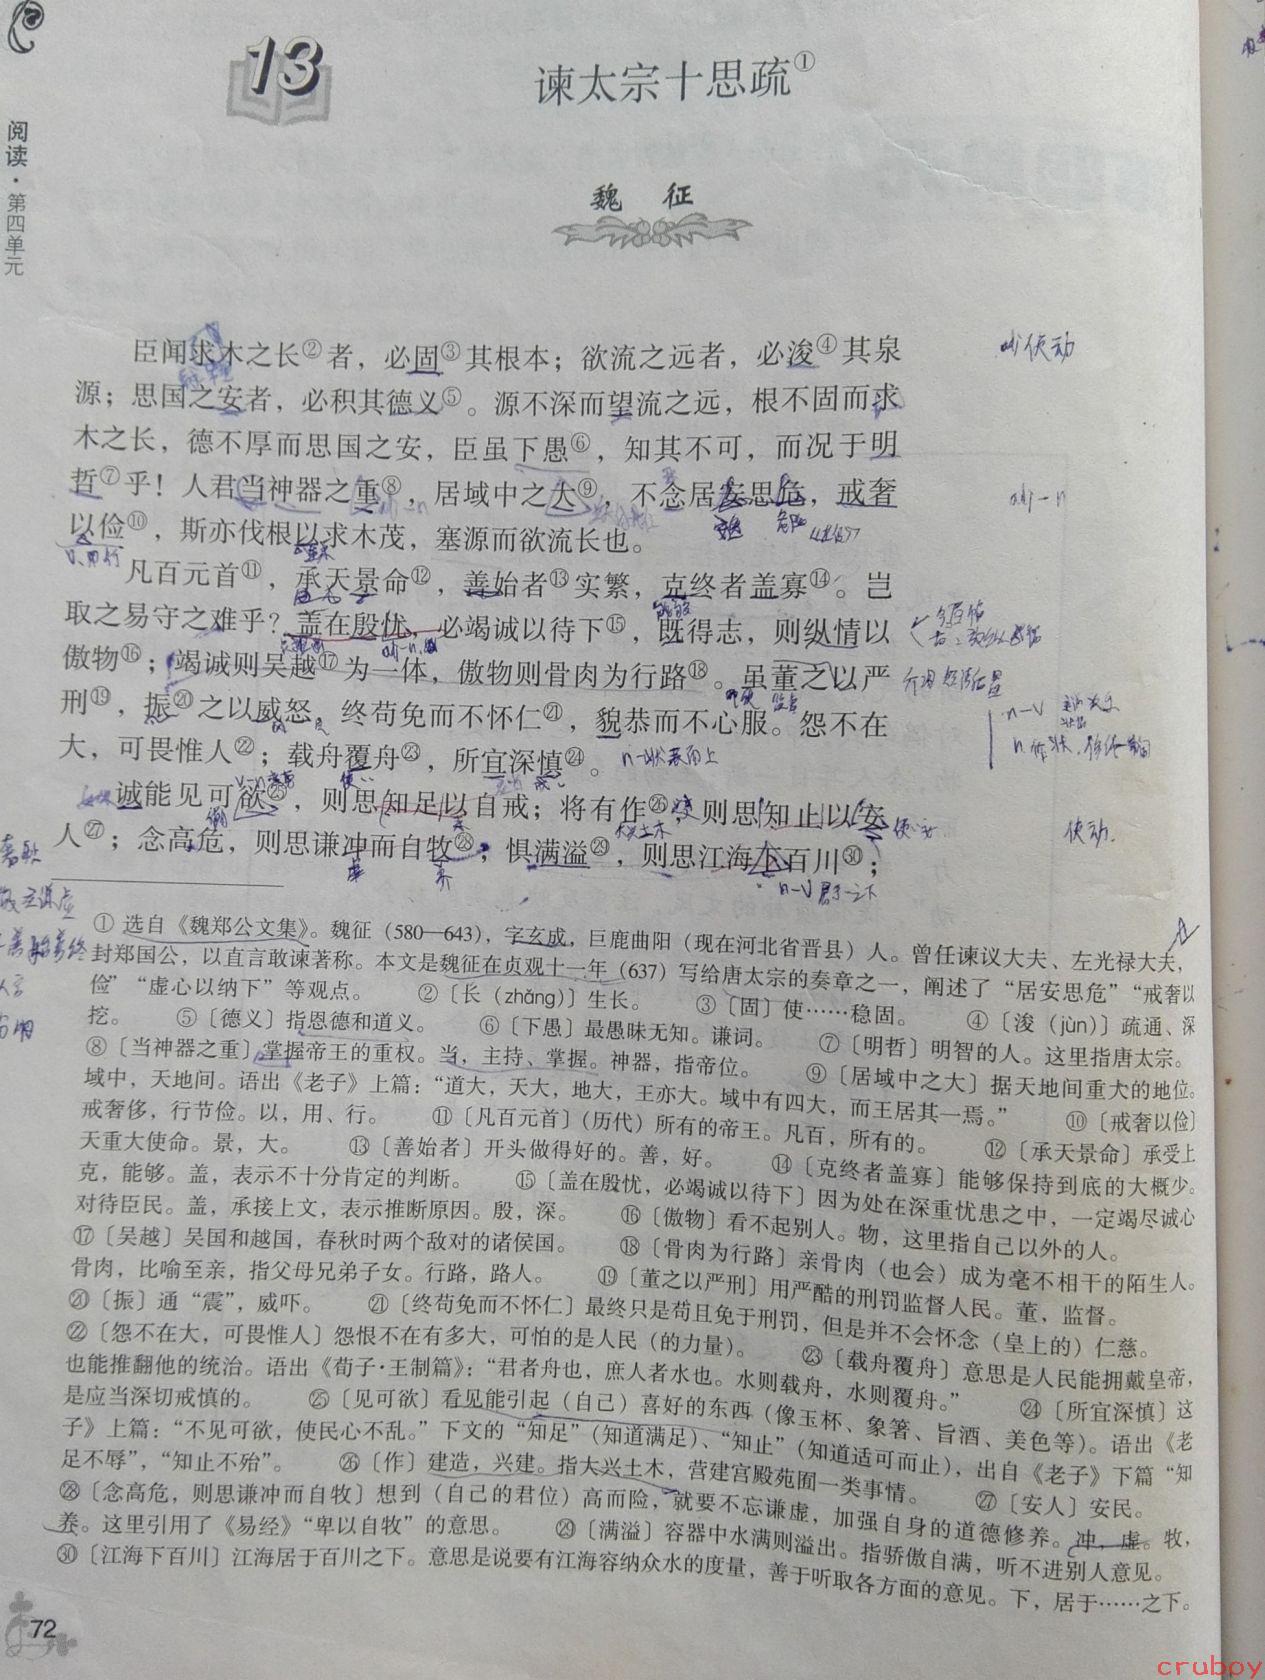 13
谏太宗十思疏①
阅读·第四单元
魏 征
臣闻求木之长②者，必固③其根本；欲流之远者，必浚④其泉
源；思国之安者，必积其德义⑤。源不深而望流之远，根不固而求
木之长，德不厚而思国之安，臣虽下愚⑥，知其不可，而况于明
哲⑦乎！人君当神器之重⑧，居域中之大⑨，不念居安思危，戒奢
以俭⑩，斯亦伐根以求木茂，塞源而欲流长也。
凡百元首⑪，承天景命⑫，善始者⑬实繁，克终者盖寡⑭。岂
取之易守之难乎？盖在殷忧，必竭诚以待下⑮，既得志，则纵情以
傲物⑯；竭诚则吴越⑰为一体，傲物则骨肉为行路⑱。虽董之以严
刑⑲，振⑳之以威怒，终苟免而不怀仁㉑，貌恭而不心服。怨不在
大，可畏惟人㉒；载舟覆舟㉓，所宜深慎㉔。
诚能见可欲㉕，则思知足以自戒；将有作㉖，则思知止以安
人㉗；念高危，则思谦冲而自牧㉘；惧满溢㉙，则思江海下百川㉚；
使动
adj-n
n-V
使动.
① 选自《魏郑公文集》。魏征（580—643），字玄成，巨鹿曲阳（现在河北省晋县）人。曾任谏议大夫、左光禄大夫，
封郑国公，以直言敢谏著称。本文是魏征在贞观十一年（637）写给唐太宗的奏章之一，阐述了“居安思危”“戒奢以
俭”“虚心以纳下”等观点。 ②〔长（zhǎng）〕生长。 ③〔固〕使……稳固。 ④〔浚（jùn）〕疏通、深
挖。 ⑤〔德义〕指恩德和道义。 ⑥〔下愚〕最愚昧无知。谦词。 ⑦〔明哲〕明智的人。这里指唐太宗。
⑧〔当神器之重〕掌握帝王的重权。当，主持、掌握。神器，指帝位。 ⑨〔居域中之大〕据天地间重大的地位。
域中，天地间。语出《老子》上篇：“道大，天大，地大，王亦大。域中有四大，而王居其一焉。” ⑩〔戒奢以俭〕
戒奢侈，行节俭。以，用、行。 ⑪〔凡百元首〕（历代）所有的帝王。凡百，所有的。 ⑫〔承天景命〕承受上
天重大使命。景，大。 ⑬〔善始者〕开头做得好的。善，好。 ⑭〔克终者盖寡〕能够保持到底的大概少。
克，能够。盖，表示不十分肯定的判断。 ⑮〔盖在殷忧，必竭诚以待下〕因为处在深重忧患之中，一定竭尽诚心
对待臣民。盖，承接上文，表示推断原因。殷，深。 ⑯〔傲物〕看不起别人。物，这里指自己以外的人。
⑰〔吴越〕吴国和越国，春秋时两个敌对的诸侯国。 ⑱〔骨肉为行路〕亲骨肉（也会）成为毫不相干的陌生人。
骨肉，比喻至亲，指父母兄弟子女。行路，路人。 ⑲〔董之以严刑〕用严酷的刑罚监督人民。董，监督。
⑳〔振〕通“震”，威吓。 ㉑〔终苟免而不怀仁〕最终只是苟且免于刑罚，但是并不会怀念（皇上的）仁慈。
㉒〔怨不在大，可畏惟人〕怨恨不在有多大，可怕的是人民（的力量）。 ㉓〔载舟覆舟〕意思是人民能拥戴皇帝，
也能推翻他的统治。语出《荀子·王制篇》：“君者舟也，庶人者水也。水则载舟，水则覆舟。” ㉔〔所宜深慎〕这
是应当深切戒慎的。 ㉕〔见可欲〕看见能引起（自己）喜好的东西（像玉杯、象箸、旨酒、美色等）。语出《老
子》上篇：“不见可欲，使民心不乱。”下文的“知足”（知道满足）、“知止”（知道适可而止），出自《老子》下篇“知
足不辱”，“知止不殆”。 ㉖〔作〕建造，兴建。指大兴土木，营建宫殿苑囿一类事情。 ㉗〔安人〕安民。
㉘〔念高危，则思谦冲而自牧〕想到（自己的君位）高而险，就要不忘谦虚，加强自身的道德修养。冲，虚。牧，
养。这里引用了《易经》“卑以自牧”的意思。 ㉙〔满溢〕容器中水满则溢出。指骄傲自满，听不进别人意见。
㉚〔江海下百川〕江海居于百川之下。意思是说要有江海容纳众水的度量，善于听取各方面的意见。下，居于……之下。
72
cruboy